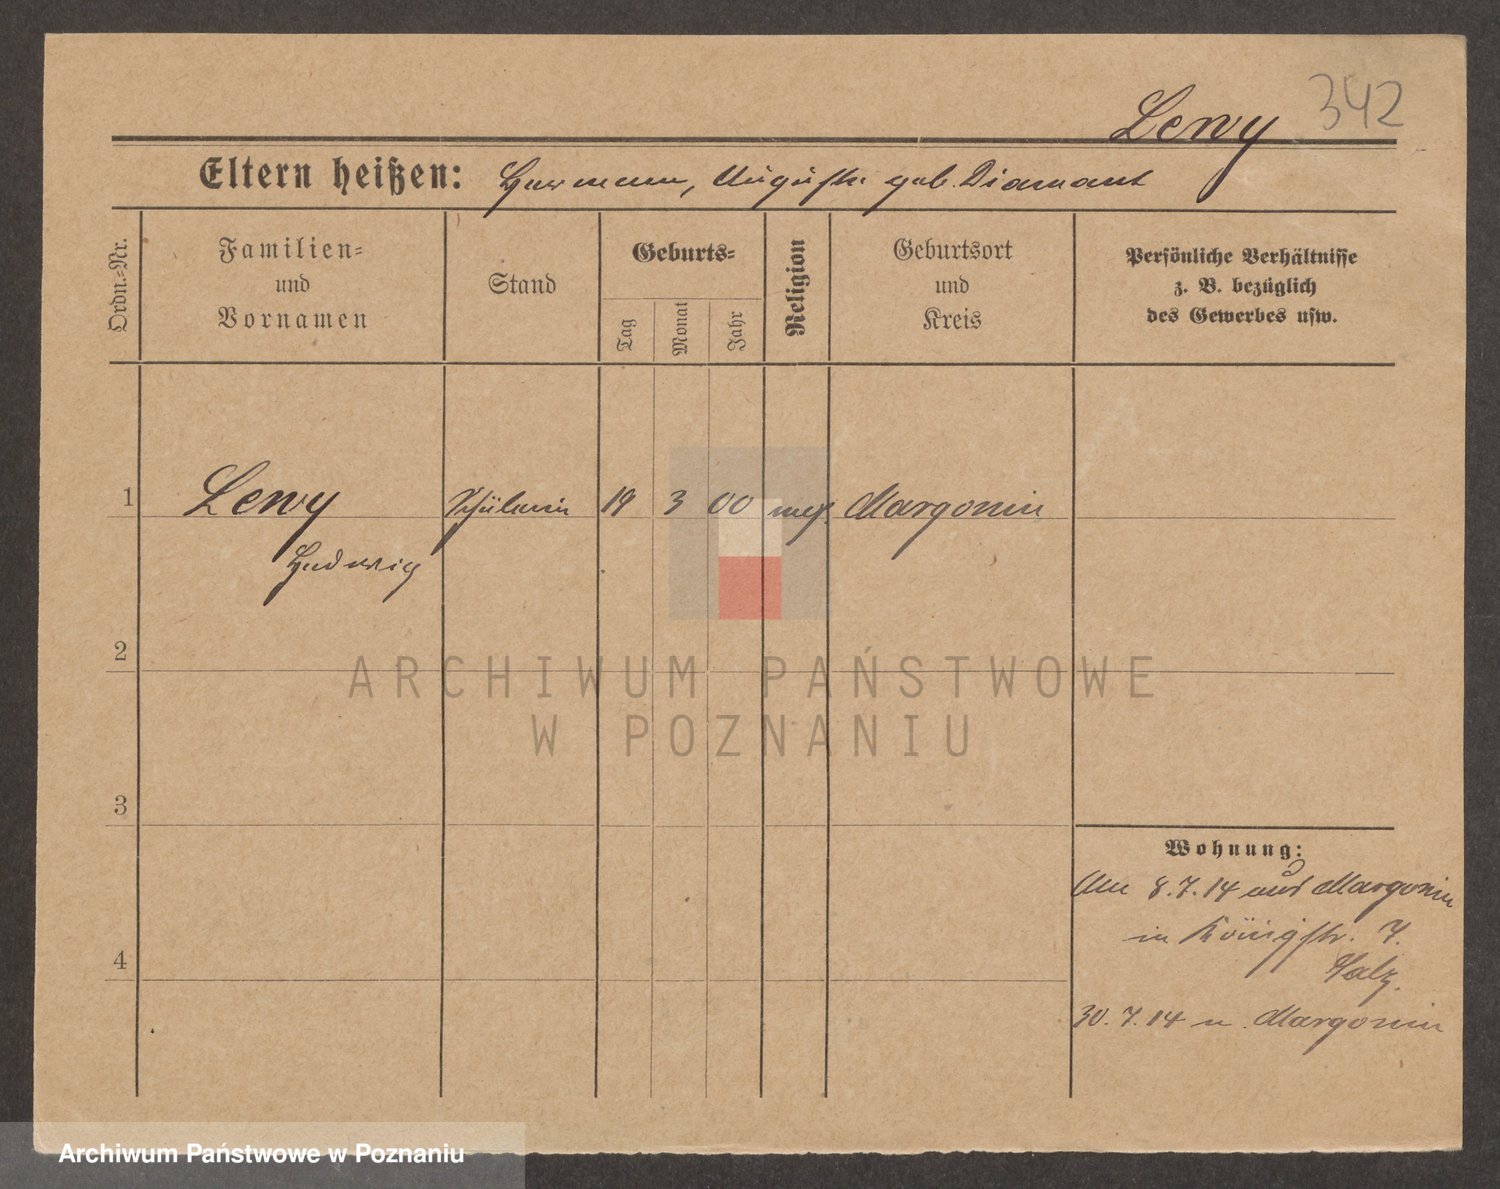 Lewy 342
Eltern heißen: Hermann, Auguste geb. Diamant
Ordn.-Nr.
Familien-
und
Vornamen
Stand
Geburts-
Tag
Monat
Jahr
Religion
Geburtsort
und
Kreis
Persönliche Verhältnisse
z. B. bezüglich
des Gewerbes usw.
1 Lewy Schülerin 19 3 00 mos. Margonin
Hedwig
2
3
4
Wohnung:
Am 8.7.14 aus Margonin
in Königstr. 7.
30.7.14 n. Margonin
ARCHIWUM PAŃSTWOWE
W POZNANIU
Archiwum Państwowe w Poznaniu